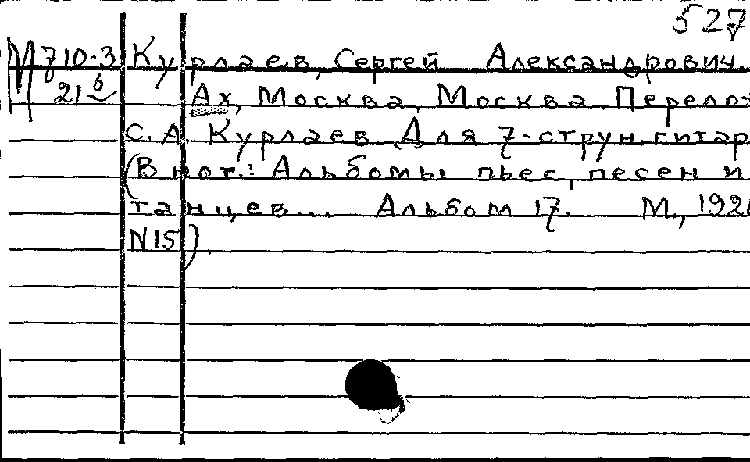 527
М 710-3 Курлаев, Сергей Александрович.
21 б Ах, Москва, Москва. Перелож
С.А. Курлаев. Для 7-струн. гитар
(В нот.: Альбомы пьес, песен и
танцев... Альбом 17. М., 192
N15).